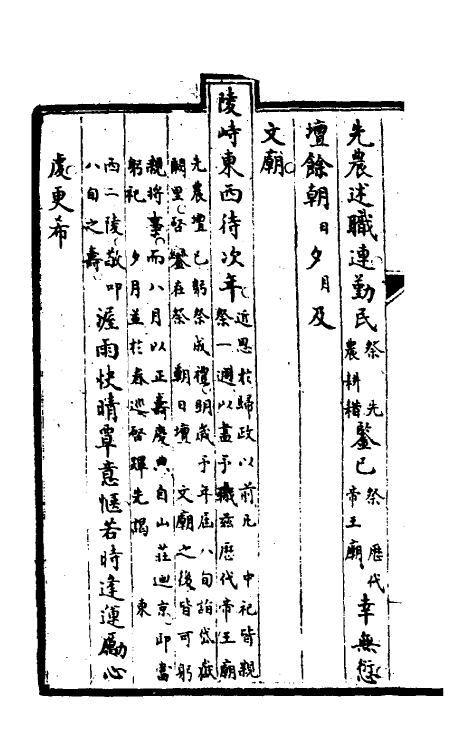 先農述職連勤民祭先農耕耤鑒已祭歷代帝王廟幸無愆
壇餘朝日夕月及
文廟
陵峙東西待次年近思於歸政以前凡中祀皆親
祭一週以盡予職茲歷代帝王廟
先農壇已躬祭成禮明歲予年屆八旬詣岱嶽
闕里啓鑾在祭朝日壇文廟之後皆可躬
親將事而八月以正壽慶典自山莊迴京即當
躬祀夕月並於春巡啓蹕先謁東
西二陵敬叩
八旬之壽渥雨快晴覃意愜若時逢運勵心
處更希